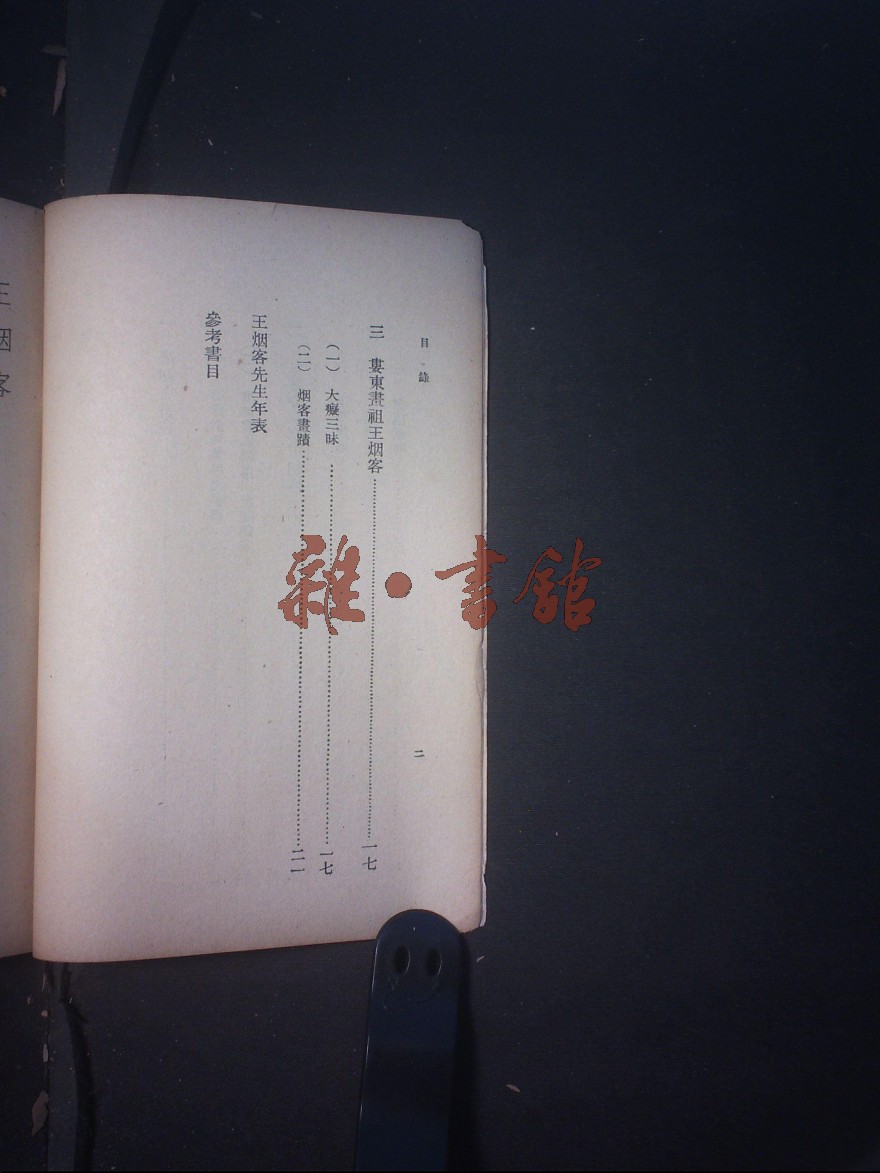 目錄
二
三 婁東畫祖王烟客……一七
(一) 大癡三昧……一七
(二) 烟客畫蹟……二一
王烟客先生年表
參考書目
王烟客
雜·書館